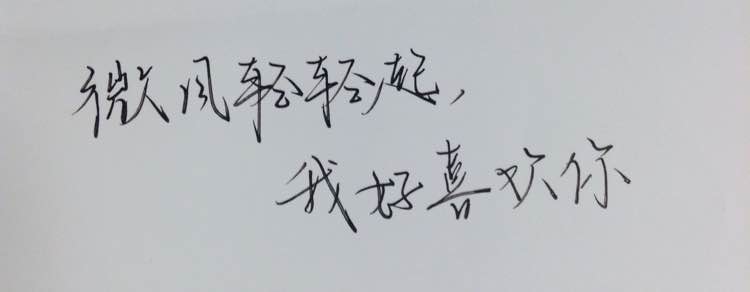 微风轻轻起，
我好喜欢你